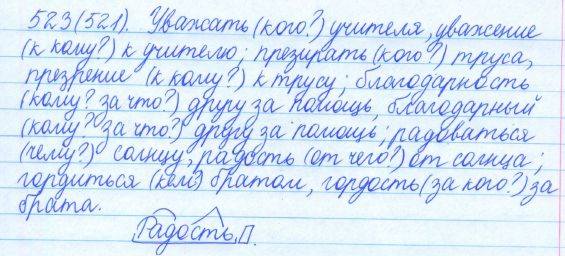 523(521). Уважать (кого?) учителя, уважение
(к кому?) к учителю; презирать (кого?) труса,
презрение (к кому?) к трусу; благодарность
(кому? за что?) другу за помощь, благодарный
(кому? за что?) другу за помощь; радоваться
(чему?) солнцу, радость (от чего?) от солнца;
гордиться (кем) братом, гордость (за кого?) за
брата.
Радость, П.